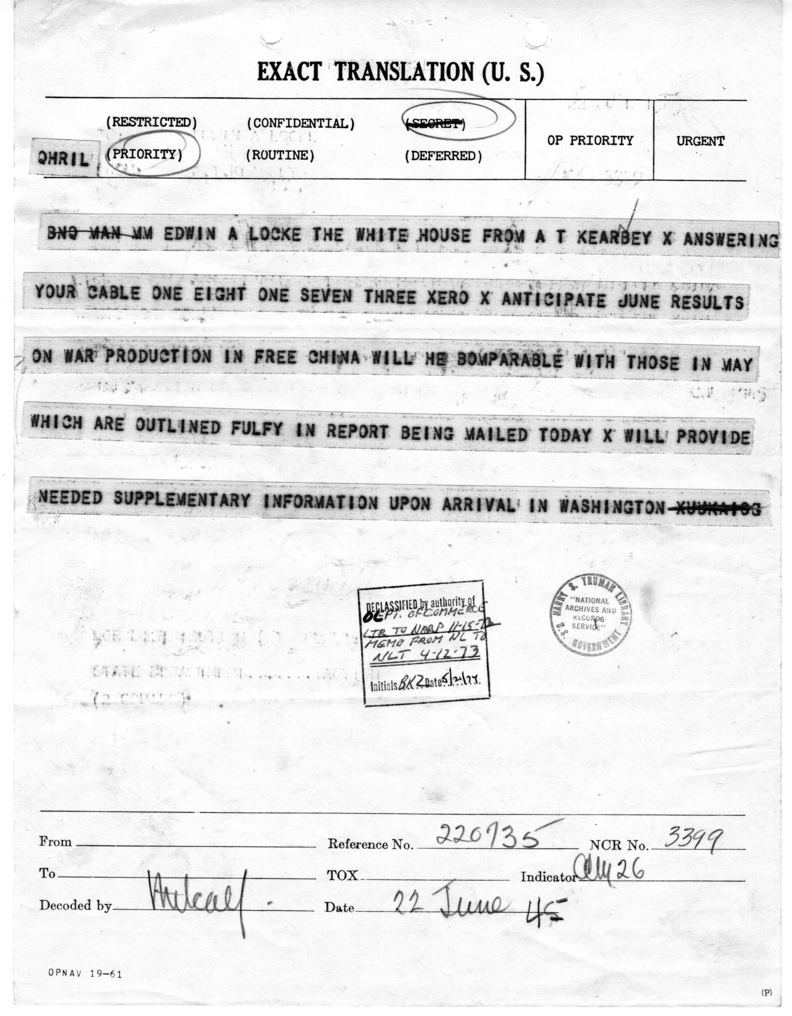 EXACT TRANSLATION (U. S.)
(RESTRICTED) (CONFIDENTIAL) (SECRET) OP PRIORITY URGENT
QHRIL (PRIORITY) (ROUTINE) (DEFERRED)
BNO MAN MM EDWIN A LOCKE THE WHITE HOUSE FROM A T KEARBEY X ANSWERING
YOUR CABLE ONE EIGHT ONE SEVEN THREE XERO X ANTICIPATE JUNE RESULTS
ON WAR PRODUCTION IN FREE CHINA WILL HE BOMPARABLE WITH THOSE IN MAY
WHICH ARE OUTLINED FULFY IN REPORT BEING MAILED TODAY X WILL PROVIDE
NEEDED SUPPLEMENTARY INFORMATION UPON ARRIVAL IN WASHINGTON
DECLASSIFIED by authority of
DEPT. OF COMMERCE
LTR TO NARP 11-15-72
MEMO FROM NL TO
NLT 4-12-73
Initials BKZ Date 5/21/74
HARRY S. TRUMAN LIBRARY
"NATIONAL
ARCHIVES AND
RECORDS
SERVICE"
U.S. GOVERNMENT
From Reference No. 220735 NCR No. 3399
To TOX Indicator 26
Decoded by Metcalf Date 22 June 45
OPNAV 19-61
(P)